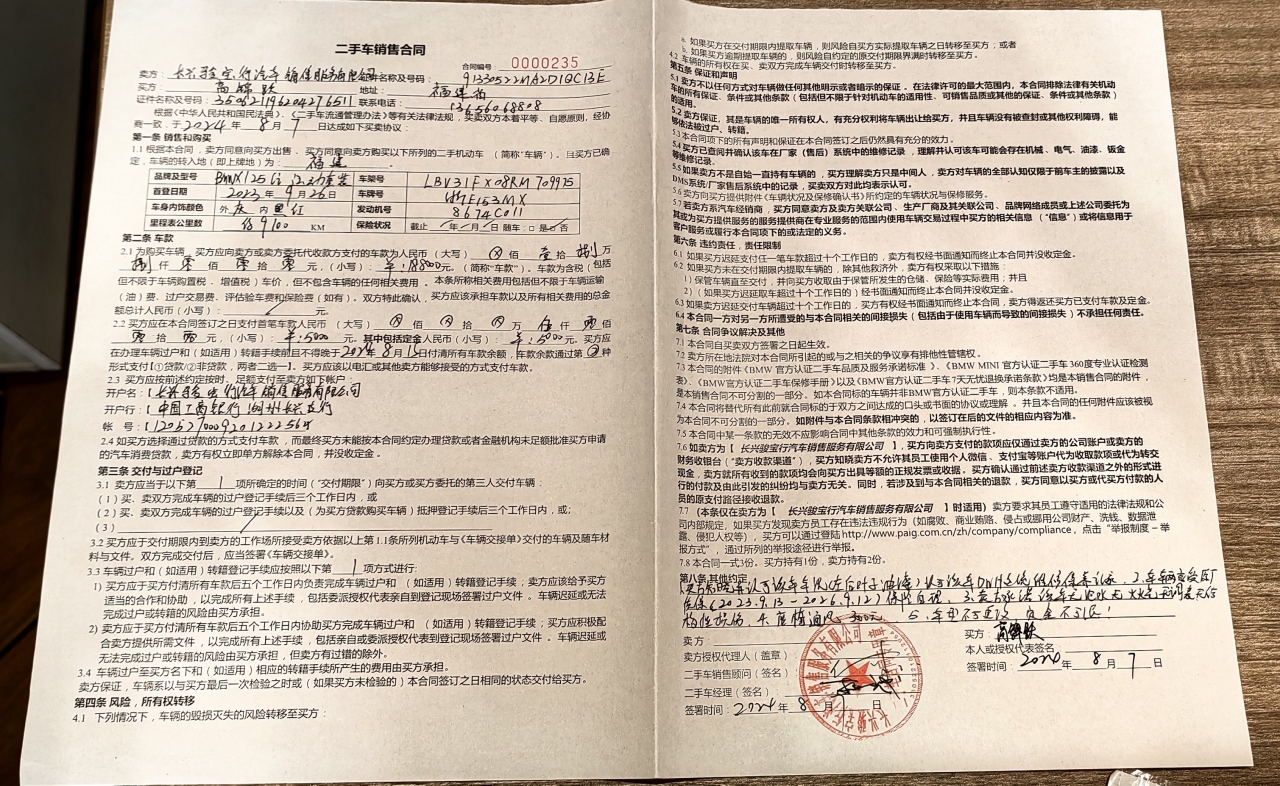 二手车销售合同
合同编号 0000235
卖方：长兴骏宝行汽车销售服务有限公司 证件名称及号码：
买方： 地址：福建省
证件名称及号码： 联系电话：13656068808
根据《中华人民共和国民法典》、《二手车流通管理办法》等有关法律法规，买卖双方本着平等、自愿原则，经协
商一致，于2024年8月7日达成如下买卖协议：
第一条 销售和购买
1.1 根据本合同，卖方同意向买方出售、买方同意向卖方购买以下所列的二手机动车（简称“车辆”）。且买方已确
定，车辆的转入地（即上牌地）为：福建
品牌及型号 BMW X1 25Li 车架号 LBV31FX08RM709975
首登日期 2023年9月26日 车牌号
车身内饰颜色 外灰内红 发动机号 8674C011
里程表公里数 9100 KM 保险状况 截止 / 年 / 月 / 日 随车：□是 否
第二条 车款
2.1 为购买车辆，买方应向卖方或卖方委托收款方支付的车款为人民币（大写）⊗佰壹拾捌万
捌仟零佰零拾零元，（小写）：￥:188000元。（简称“车款”）。车款为含税（包括
但不限于车辆购置税、增值税）车价，但不包含车辆的任何相关费用。本条所称相关费用包括但不限于车辆运输
（油）费、过户交易费、评估验车费和保险费（如有）。双方特此确认，买方应该承担车款以及所有相关费用的总金
额总计人民币（小写）：元。
2.2 买方应在本合同签订之日支付首笔车款人民币（大写）⊗佰⊗拾⊗万伍仟零佰
零拾零元，（小写）：￥:5000元。其中包括定金人民币（小写）：￥:5000元。买方应
在办理车辆过户和（如适用）转籍手续前且不得晚于2024年8月15日付清所有车款余额，车款余款通过第②种
形式支付【①贷款/②非贷款，两者二选一】。买方应该以电汇或其他卖方能够接受的方式支付车款。
2.3 买方应按前述约定按时、足额支付至卖方如下帐户：
开户名：【长兴骏宝行汽车销售服务有限公司
开户行：【中国工商银行湖州长兴支行
帐 号：【1205270009201222564
2.4 如买方选择通过贷款的方式支付车款，而最终买方未能按本合同约定办理贷款或者金融机构未足额批准买方申请
的汽车消费贷款，卖方有权立即单方解除本合同，并没收定金。
第三条 交付与过户登记
3.1 卖方应当于以下第1项所确定的时间（“交付期限”）向买方或买方委托的第三人交付车辆：
（1）买、卖双方完成车辆的过户登记手续后三个工作日内，或
（2）买、卖双方完成车辆的过户登记手续以及（为买方贷款购买车辆）抵押登记手续后三个工作日内，或；
（3）
3.2 买方应于交付期限内到卖方的工作场所接受卖方依据以上第1.1条所列机动车与《车辆交接单》交付的车辆及随车材
料与文件。双方完成交付后，应当签署《车辆交接单》。
3.3 车辆过户和（如适用）转籍登记手续应按照以下第1项方式进行：
1）买方应于买方付清所有车款后五个工作日内负责完成车辆过户和（如适用）转籍登记手续；卖方应该给予买方
适当的合作和协助，以完成所有上述手续，包括委派授权代表亲自到登记现场签署过户文件。车辆迟延或无法
完成过户或转籍的风险由买方承担。
2）卖方应于买方付清所有车款后五个工作日内协助买方完成车辆过户和（如适用）转籍登记手续；买方应积极配
合卖方提供所需文件，以完成所有上述手续，包括亲自或委派授权代表到登记现场签署过户文件。车辆迟延或
无法完成过户或转籍的风险由买方承担，但卖方有过错的除外。
3.4 车辆过户至买方名下和（如适用）相应的转籍手续所产生的费用由买方承担。
卖方保证，车辆系以与买方最后一次检验之时或（如果买方未检验的）本合同签订之日相同的状态交付给买方。
第四条 风险，所有权转移
4.1 下列情况下，车辆的毁损灭失的风险转移至买方：
a. 如果买方在交付期限内提取车辆，则风险自买方实际提取车辆之日转移至买方；或者
b. 如果买方逾期提取车辆的，则风险自约定的原交付期限界满时转移至买方。
4.2 车辆的所有权在买、卖双方完成车辆交付时转移至买方。
第五条 保证和声明
5.1 卖方不以任何方式对车辆做任何其他明示或者暗示的保证。在法律许可的最大范围内，本合同排除法律有关机动
车的所有保证、条件或其他条款（包括但不限于针对机动车的适用性、可销售品质或其他的保证、条件或其他条款）
的适用。
5.2 卖方保证，其是车辆的唯一所有权人，有充分权利将车辆出让给买方，并且车辆没有被查封或其他权利障碍，能
够依法被过户、转籍。
5.3 本合同项下的所有声明和保证在本合同签订之后仍然具有充分的效力。
5.4 买方已查阅并确认该车在厂家（售后）系统中的维修记录，理解并认可该车可能会存在机械、电气、油漆、钣金
等维修记录。
5.5 如果卖方不是自始一直持有车辆的，买方理解卖方只是中间人，卖方对车辆的全部认知仅限于前车主的披露以及
DMS系统/厂家售后系统中的记录，买卖双方对此均表示认可。
5.6 卖方向买方提供附件《车辆状况及保修确认书》所约定的车辆状况与保修服务。
5.7 若卖方系汽车经销商，买方同意卖方及卖方关联公司、生产厂商及其关联公司、品牌网络成员或上述公司委托为
其或为买方提供服务的服务提供商在专业服务的范围内使用车辆交易过程中买方的相关信息（“信息”）或将信息用于
客户服务或履行本合同项下的或法定的义务。
第六条 违约责任，责任限制
6.1 如果买方迟延支付任一笔车款超过十个工作日的，卖方有权经书面通知而终止本合同并没收定金。
6.2 如果买方未在交付期限内提取车辆的，除其他救济外，卖方有权采取以下措施：
1）保管车辆直至交付，并向买方收取由于保管所发生的仓储、保险等实际费用；并且
2）（如果买方迟延取车超过十个工作日的）经书面通知而终止本合同并没收定金。
6.3 如果卖方迟延交付车辆超过十个工作日的，买方有权经书面通知而终止本合同，卖方得返还买方已支付车款及定金。
6.4 本合同一方对另一方所遭受的与本合同相关的间接损失（包括由于使用车辆而导致的间接损失）不承担任何责任。
第七条 合同争议解决及其他
7.1 本合同自买卖双方签署之日起生效。
7.2 卖方所在地法院对本合同所引起的或与之相关的争议享有排他性管辖权。
7.3 本合同的附件《BMW 官方认证二手车品质及服务承诺标准》、《BMW MINI 官方认证二手车 360度专业认证检测
表》、《BMW官方认证二手车保修手册》以及《BMW官方认证二手车7天无忧退换承诺条款》均是本销售合同的附件，
是本销售合同不可分割的一部分。如本合同标的车辆并非BMW官方认证二手车，则本条款不适用。
7.4 本合同将替代所有此前就合同标的于双方之间达成的口头或书面的协议或理解。并且本合同的任何附件应该被视
为本合同不可分割的一部分。如附件与本合同条款相冲突的，以签订在后的文件的相应内容为准。
7.5 本合同中某一条款的无效不应影响合同中其他条款的效力和可强制执行性。
7.6 如卖方为【 长兴骏宝行汽车销售服务有限公司 】，买方向卖方支付的款项应仅通过卖方的公司账户或卖方的
财务收银台（“卖方收款渠道”），买方知晓卖方不允许其员工使用个人微信、支付宝等账户代为收取款项或代为转交
现金，卖方就所有收到的款项均会向买方出具等额的正规发票或收据。买方确认通过前述卖方收款渠道之外的形式进
行的付款及由此引发的纠纷均与卖方无关。同时，若涉及到与本合同相关的退款，买方同意以买方或代买方付款的人
员的原支付路径接收退款。
7.7 （本条仅在卖方为【 长兴骏宝行汽车销售服务有限公司 】时适用）卖方要求其员工遵守适用的法律法规和公
司内部规定，如果买方发现卖方员工存在违法违规行为（如腐败、商业贿赂、侵占或挪用公司财产、洗钱、数据泄
露、侵犯人权等），买方可以通过登陆http://www.paig.com.cn/zh/compliance，点击“举报制度－举
报方式”，通过所列的举报途径进行举报。
7.8 本合同一式3份。买方持有1份，卖方持有2份。
第八条 其他约定
卖方： 买方：
卖方授权代理人（盖章）： 本人或授权代表签名：
二手车销售顾问（签名）： 签署时间：2024年8月7日
二手车经理（签名）：
签署时间：2024年8月 日